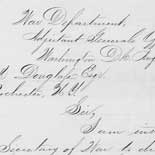 War Department,
Adjutant General's Of
Washington D.C. Aug
Douglass Esq.
ochester, N.Y.
Sir,
I am ins
Secretary of War to